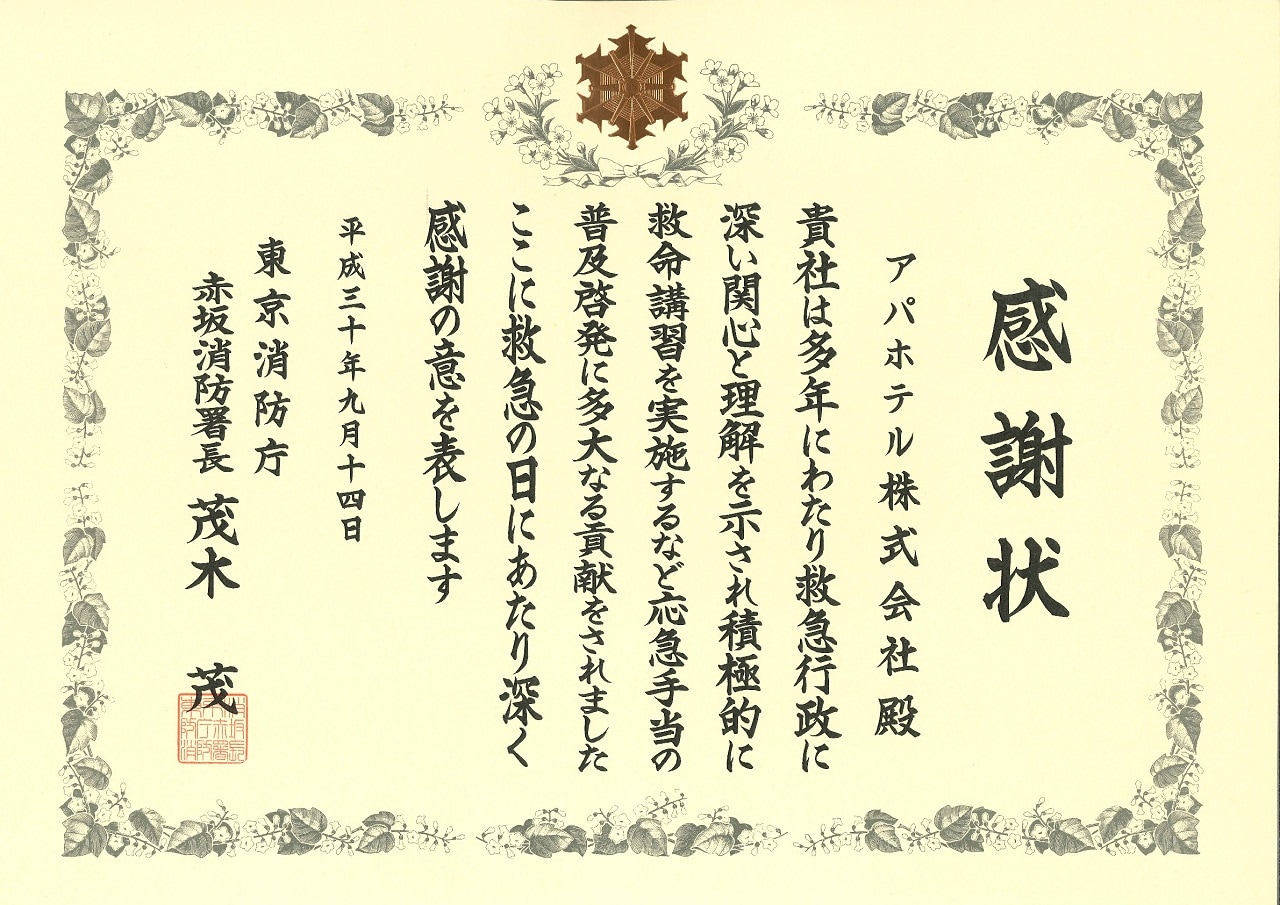 感謝状
アパホテル株式会社 殿
貴社は多年にわたり救急行政に
深い関心と理解を示され積極的に
救命講習を実施するなど応急手当の
普及啓発に多大なる貢献をされました
ここに救急の日にあたり深く
感謝の意を表します
平成三十年九月十四日
東京消防庁
赤坂消防署長 茂木 茂